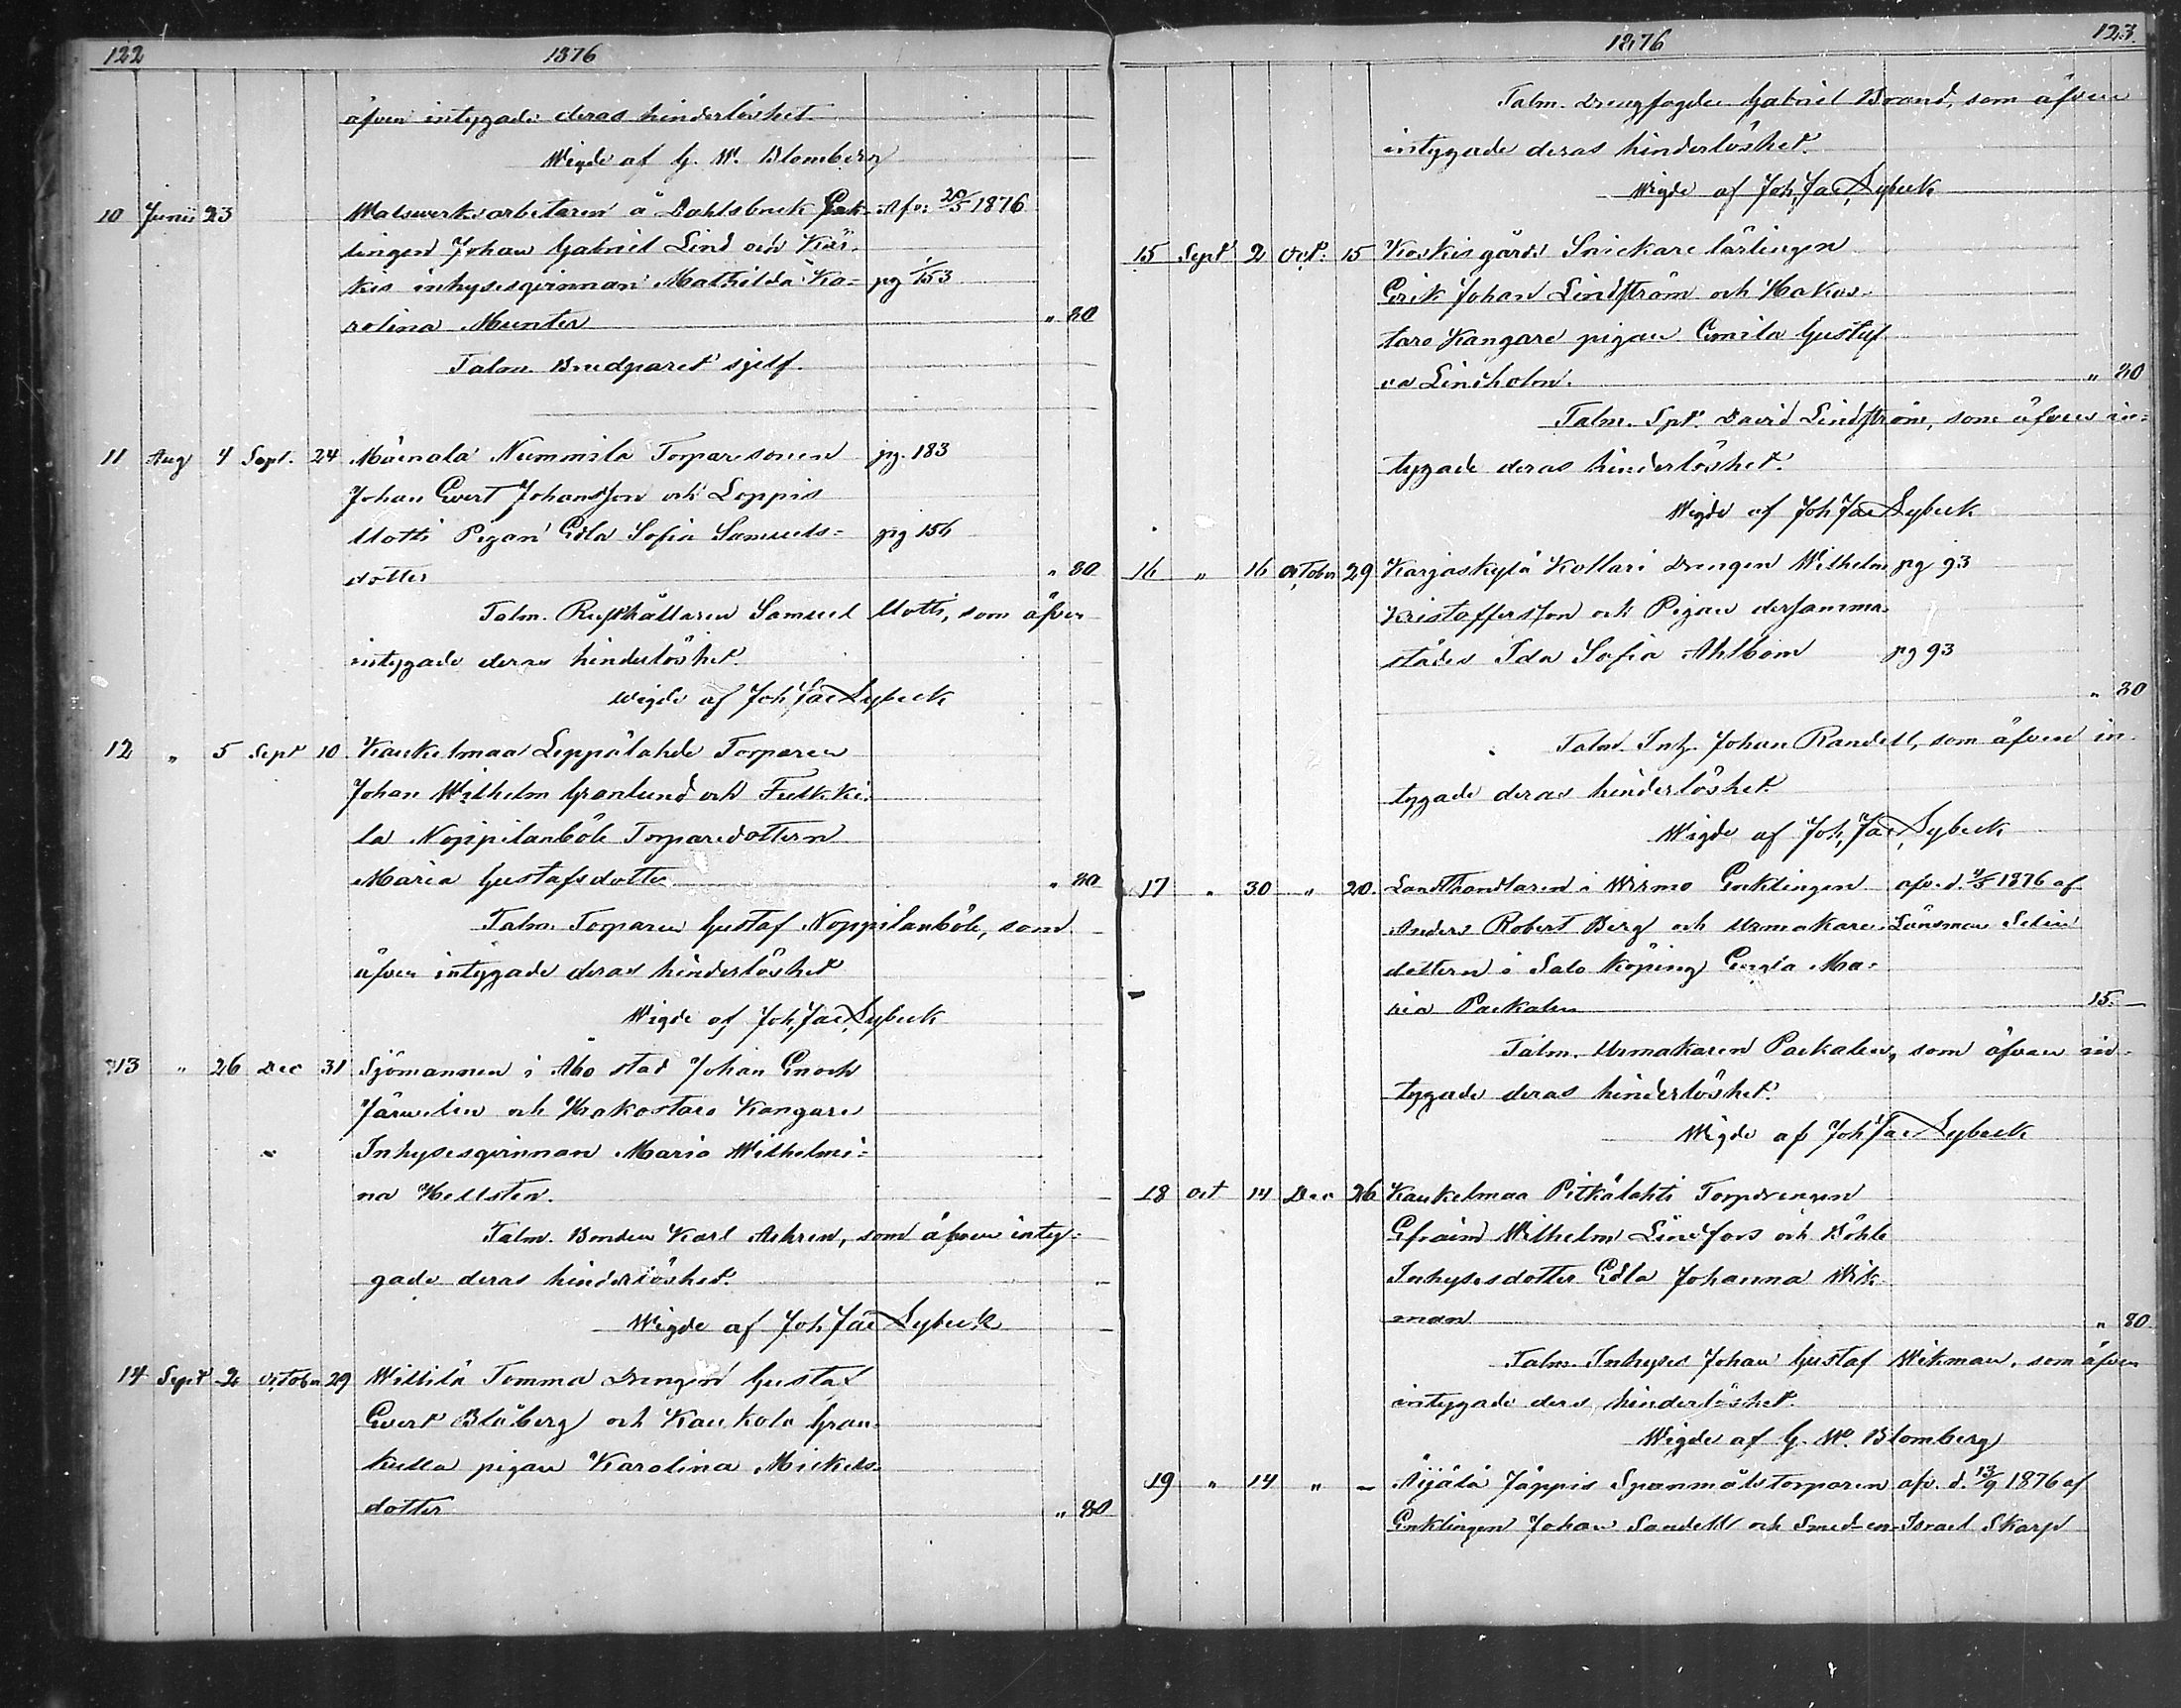 122 1876
äfven intygade deras hinderlöshet.
Wigde af G. W. Blomberg
10 Junii 23 Walsverksarbetaren å Dahlsbruk Enk- Afv. 20/5 1876
lingen Johan Gabriel Lind och Kär-
kis inhysesqvinnan Mathilda Ka- pg 153
rolina Munter " 80
Talm. Brudparet sjelf.
11 Aug 4 Sept. 24 Mäenala Nummila Torparesonen pg. 183
Johan Evert Johansson och Loppis
Uotti Pigan Edla Sofia Samuels- pg 156
dotter " 80
Talm. Rusthållaren Samuel Uotti, som äfven
intygade deras hinderlöshet.
Wigde af Joh. Jac. Lybeck
12 " 5 Sept 10 Kaukelmaa Leppälahde Torparen
Johan Wilhelm Granlund och Fulkki-
la Noppilanböle Torparedottern
Maria Gustafsdotter " 80
Talm. Torparen Gustaf Noppilanböle, som
äfven intygade deras hinderlöshet
Wigde af Joh. Jac. Lybeck
13 " 26 Dec 31 Sjömannen i Åbo stad Johan Enoch
Järvelin och Hakostaro Kangare
Inhysesqvinnan Maria Wilhelmi-
na Hellsten.
Talm. Bonden Karl Ahren, som äfven inty-
gade deras hinderlöshet.
Wigde af Joh. Jac Lybeck
14 Sept 2 October 29 Willilä Tomma Drengen Gustaf
Evert Blåberg och Kaukola Gran-
kulla pigan Karolina Mickels-
dotter " 80
1876 123.
Talm. Drengfogden Gabriel Brand, som äfven
intygade deras hinderlöshet.
Wigde af Joh. Jac. Lybeck
15 Sept 2 Oct. 15 Koskisgårds Snickare lärlingen
Erik Johan Lindström och Hakos-
taro Kangare pigan Emila Gustaf-
va Lindholm. " 80
Talm. Spt. David Lindström, som äfven in-
tygade deras hinderlöshet.
Wigde af Joh Jac Lybeck
16 " 16 October 29 Karjaskylä Kollari Drengen Wilhelm pg 93
Kristoffersson och Pigan dersamma-
städes Ida Sofia Ahlbom pg 93
" 80
Talm. Inh. Johan Randell, som äfven in-
tygade deras hinderlöshet.
Wigde af Joh. Jac. Lybeck
17 " 30 " 20. Landthandlaren i Wirmo Enklingen afv. d. 9/5 1876 af
Anders Robert Berg och Urmakare- Länsman Selin
dottern i Salo Köping Engla Ma-
ria Packalen 15. —
Talm. Urmakaren Packalen, som äfven in-
tygade deras hinderlöshet.
Wigde af Joh Jac Lybeck
18 Oct 14 Dec 26 Kaukelmaa Pitkälahti Torpdrengen
Efraim Wilhelm Lindfors och Böhle
Inhysesdotter Edla Johanna Wik-
man " 80
Talm. Inhyses Johan Gustaf Wikman, som äfven
intygade deras hinderlöshet.
Wigde af G. W. Blomberg
19 " 14 " — Äijälä Jäppis Spanmålstorparen afv. d. 13/9 1876 af
Enklingen Johan Sandell och Smed-en- Israel Skarp